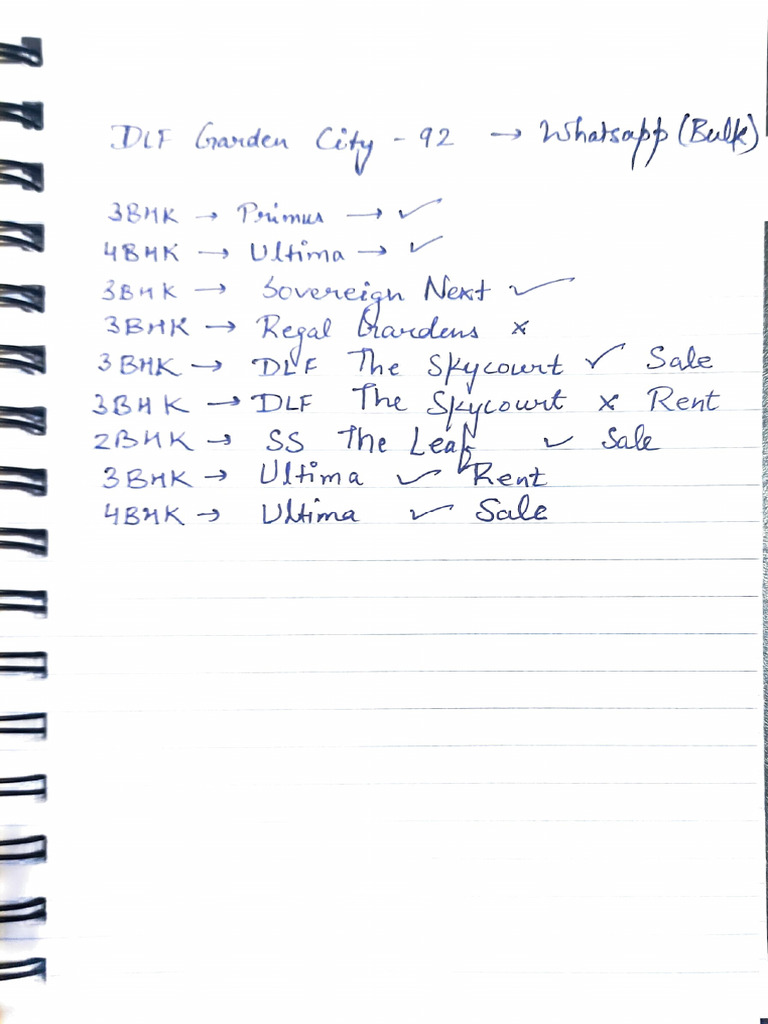 DLF Garden City - 92 → Whatsapp (Bulk)
3BHK → Primus → ✓
4BHK → Ultima → ✓
3BHK → Sovereign Next ✓
3BHK → Regal Gardens ×
3BHK → DLF The Skycourt ✓ Sale
3BHK → DLF The Skycourt × Rent
2BHK → SS The Leaf ✓ Sale
3BHK → Ultima ✓ Rent
4BHK → Ultima ✓ Sale